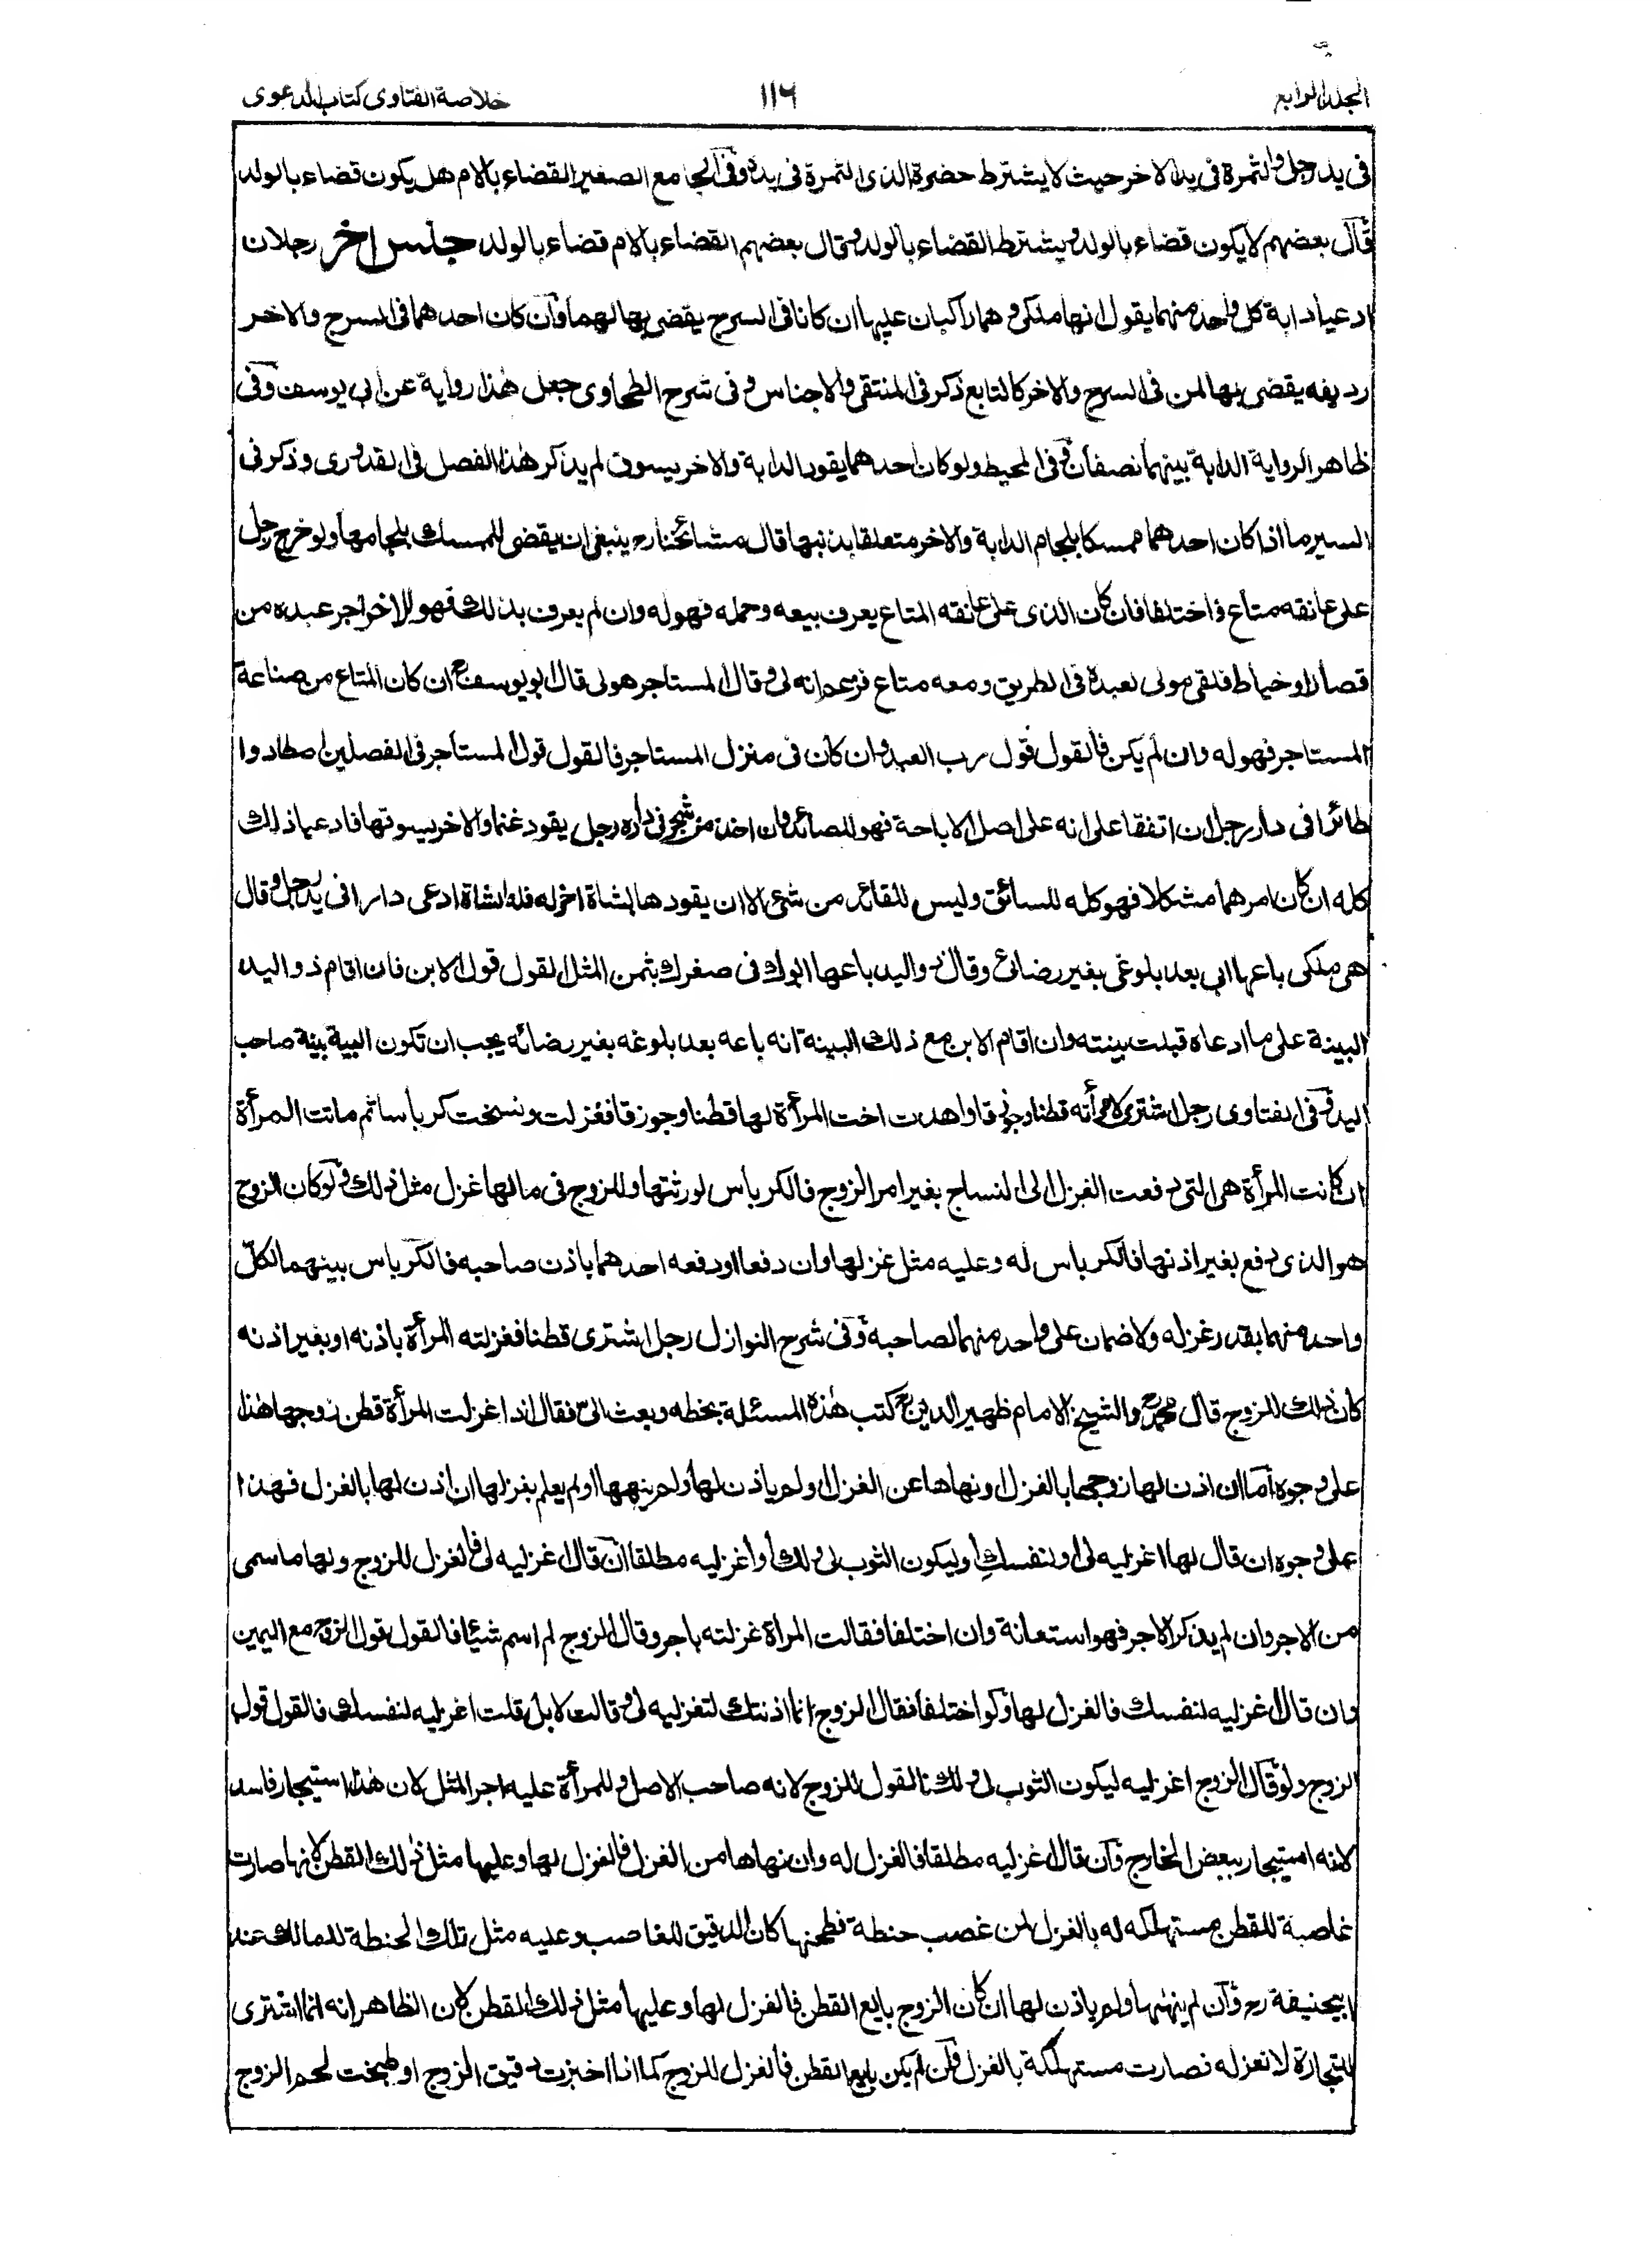 المجلد الرابع ١١٦ خلاصة الفتاوى كتاب الدعوى
فى يد رجل والثمرة فى يد الاخر حيث لا يشترط حضرة الذى الثمرة فى يده وفى الجامع الصغير القضاء بالام هل يكون قضاء بالولد
قال بعضهم لا يكون قضاء بالولد ويشترط القضاء بالولد وقال بعضهم القضاء بالام قضاء بالولد جنس اخر رجلان
ادعيا دابة كل واحد منهما يقول انها ملكى وهما راكبان عليها ان كانا فى السرج يقضى بها لهما وان كان احدهما فى السرج والاخر
رديفه يقضى بها لمن فى السرج والاخر كالتابع ذكر فى المنتقى والاجناس وفى شرح الطحاوى جعل هذا رواية عن ابى يوسف وفى
ظاهر الرواية الدابة بينهما نصفان وفى المحيط ولو كان احدهما يقود الدابة والاخر يسوق لم يذكر هذا الفصل فى القدورى وذكر فى
السير ما اذا كان احدهما ممسكا بلجام الدابة والاخر متعلقا بذنبها قال مشائخنا رح ينبغى ان يقضى للممسك بلجامها ولو خرج رجل
على عانقه متاع فاختلفا فان كان الذى على عانقه المتاع يعرف ببيعه وحمله فهو له وان لم يعرف بذلك فهو للاخر اجر عبده من
قصار او خياط فلقى مولى لعبده فى الطريق ومعه متاع فزعم انه لى وقال المستاجر هو لى قال ابو يوسف رح ان كان المتاع من صناعة
المستاجر فهو له وان لم يكن فالقول قول رب العبد وان كان فى منزل المستاجر فالقول قول المستاجر فى الفصلين اصطادوا
طائرا فى دار رجل ان اتفقا على انه على اصل الاباحة فهو للصائد وان اخذ من شجر فى داره رجل يقود غنما والاخر يسوقها فادعيا ذلك
كله ان كان امرهما مشكلا فهو كله للسائق وليس للقائد من شئ الا ان يقود ها بشاة اخر له فله الشاة ادعى دارا فى يد رجل وقال
هى ملكى باعها ابى بعد بلوغى بغير رضائى وقال ذو اليد باعها ابوك فى صغرك بثمن المثل القول قول الابن فان اقام ذو اليد
البينة على ما ادعاه قبلت بينته وان اقام الابن مع ذلك البينة انه باعه بعد بلوغه بغير رضائه يجب ان تكون البية بينة صاحب
اليد وفى الفتاوى رجل اشترى لامرأته قطنا وجوزقا واهدت اخت المرأة لها قطنا وجوزقا فغزلت ونسخت كرباسا ثم ماتت المرأة
ان كانت المرأة هى التى دفعت الغزل الى النساج بغير امر الزوج فالكرباس لورثتها وللزوج فى مالها غزل مثل ذلك ولو كان الزوج
هو الذى دفع بغير اذنها فالكرباس له وعليه مثل غزلها وان دفعا او دفعه احدهما باذن صاحبه فالكرباس بينهما لكل
واحد منهما بقدر غزله ولا ضمان على واحد منهما لصاحبه وفى شرح النوازل رجل اشترى قطنا فغزلته المرأة باذنه او بغير اذنه
كان ذلك للزوج قال محمد رح والشيخ الامام ظهير الدين رح كتب هذه المسئلة بخطه وبعث الىّ فقال اذا غزلت المرأة قطن زوجها هذا
على وجوه اما ان اذن لها زوجها بالغزل او نهاها عن الغزل او لم ياذن لها ولم ينهها او لم يعلم بغزلها ان اذن لها بالغزل فهذا
على وجوه ان قال لها اغزليه لى او لنفسكِ او ليكون الثوب لى ولك او اغزليه مطلقا ان قال اغزليه لى فالغزل للزوج ولها ما سمى
من الاجر وان لم يذكر الاجر فهو استعانة وان اختلفا فقالت المراة غزلته باجر وقال الزوج لم اسم شيئا فالقول قول الزوج مع اليمين
وان قال اغزليه لنفسك فالغزل لها ولو اختلفا فقال الزوج انما اذنتك لتغزليه لى وقالت لا بل قلت اغزليه لنفسك فالقول قول
الزوج ولو قال الزوج اغزليه ليكون الثوب لى ولك فالقول للزوج لانه صاحب الاصل وللمرأة عليه اجر المثل لان هذا استيجار فاسد
لانه استيجار ببعض الخارج وان قال اغزليه مطلقا فالغزل له وان نهاها من الغزل فالغزل لها وعليها مثل ذلك القطن لانها صارت
غاصبة للقطن مستهلكه له بالغزل لمن غصب حنطة فطحنها كان الدقيق للغاصب وعليه مثل تلك الحنطة للمالك عند
ابيحنيفة رح وان لم ينهها ولم ياذن لها ان كان الزوج بايع القطن فالغزل لها وعليها مثل ذلك القطن لان الظاهر انه انما اشترى
للتجارة لا نغزله فصارت مستهلكة بالغزل فان لم يكن بايع القطن فالغزل للزوج كما اذا اخبزت دقيق الزوج او طبخت لحم الزوج